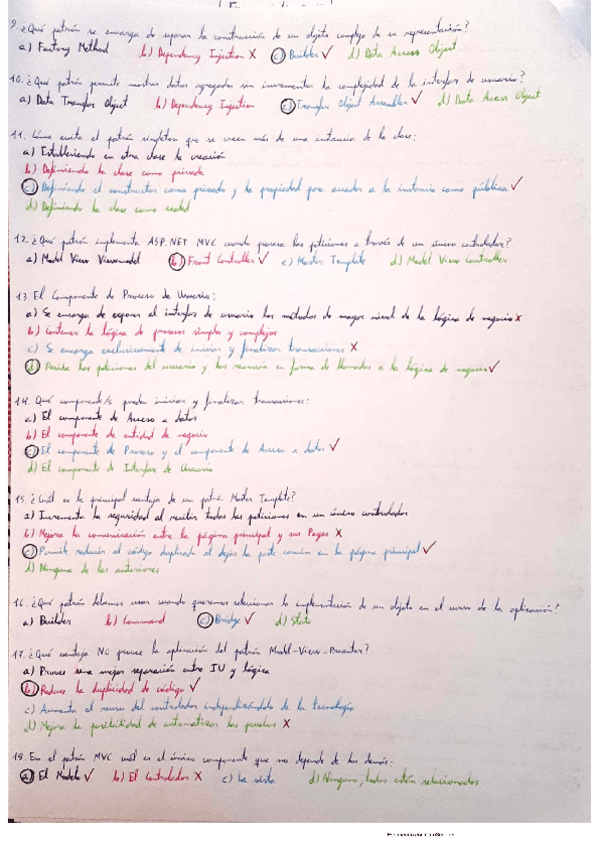 9. ¿Qué patrón se encarga de separar la construcción de un objeto complejo de su representación?
a) Factory Method b) Dependency Injection X c) Builder ✓ d) Data Access Object
10. ¿Qué patrón permite mostrar datos agregados sin incrementar la complejidad de la interfaz de usuario?
a) Data Transfer Object b) Dependency Injection c) Transfer Object Assembler ✓ d) Data Access Object
11. Cómo evita el patrón singleton que se creen más de una instancia de la clase:
a) Estableciendo en otra clase la creación
b) Definiendo la clase como privada
c) Definiendo el constructor como privado y la propiedad para acceder a la instancia como pública ✓
d) Definiendo la clase como sealed
12. ¿Qué patrón implementa ASP.NET MVC cuando procesa las peticiones a través de un único controlador?
a) Model View Viewmodel b) Front Controller ✓ c) Master Template d) Model View Controller
13. El Componente de Proceso de Usuario:
a) Se encarga de exponer al interfaz de usuario los métodos de mayor nivel de la lógica de negocio X
b) Contener la lógica de procesos simples y complejos
c) Se encarga exclusivamente de iniciar y finalizar transacciones X
d) Recibe las peticiones del usuario y las en forma de llamadas a la lógica de negocio ✓
14. Qué componente/s puede iniciar y finalizar transacciones:
a) El componente de Acceso a datos
b) El componente de entidad de negocio
c) El componente de Proceso y el componente de Acceso a datos ✓
d) El componente de Interfaz de Usuario
15. ¿Cuál es la principal ventaja de un patrón Master Template?
a) Incrementa la seguridad al recibir todas las peticiones en un único controlador
b) Mejora la comunicación entre la página principal y sus Pages X
c) Permite reducir el código duplicado al dejar la parte común en la página principal ✓
d) Ninguna de las anteriores
16. ¿Qué patrón debemos usar cuando queremos seleccionar la implementación de un objeto en el curso de la aplicación?
a) Builder b) Command c) Bridge ✓ d) State
17. ¿Qué ventaja NO provee la aplicación del patrón Model-View-Presenter?
a) Provee una mejor separación entre IU y lógica
b) Reduce la duplicidad de código ✓
c) Aumenta el reuso del controlador independizándolo de la tecnología
d) Mejora la posibilidad de automatizar las pruebas X
18. En el patrón MVC cuál es el único componente que no depende de los demás:
a) El Modelo ✓ b) El Controlador X c) La vista d) Ninguno, todos están relacionados